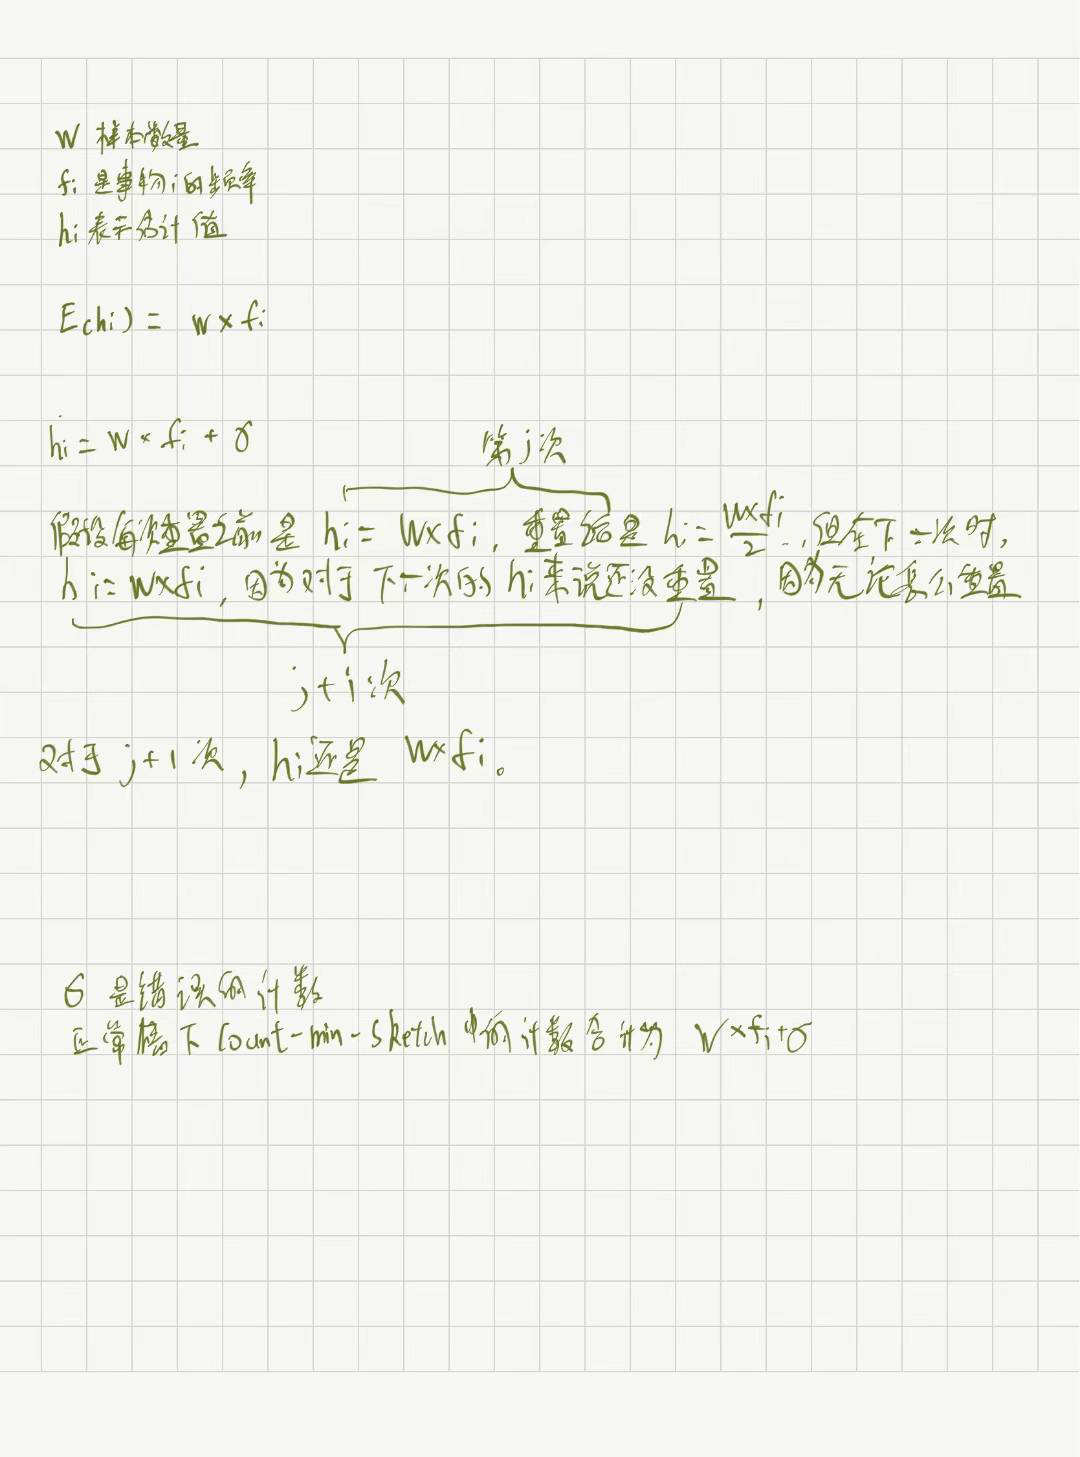 W 样本数量
fi 是事物i的频率
hi 表示估计值
E(hi) = w×fi
hi = w×fi + σ
第j次
假设每次重置之前是 hi = W×fi, 重置后是 hi = W×fi/2, 但在下一次时,
hi = W×fi, 因为对于下一次的hi来说还没重置, 因为无论怎么重置
j+1次
对于j+1次, hi还是 W×fi。
σ 是错误的计数
正常情况下 Count-min-sketch 中的计数合计为 W×fi+σ